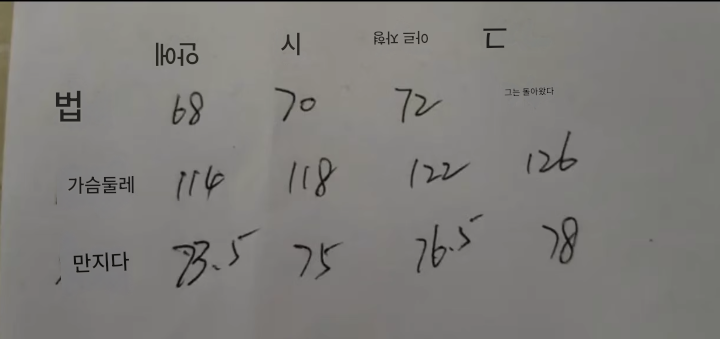 안에 시 아르 자형 그
법 68 70 72 그는 돌아왔다
가슴둘레 114 118 122 126
만지다 73.5 75 76.5 78